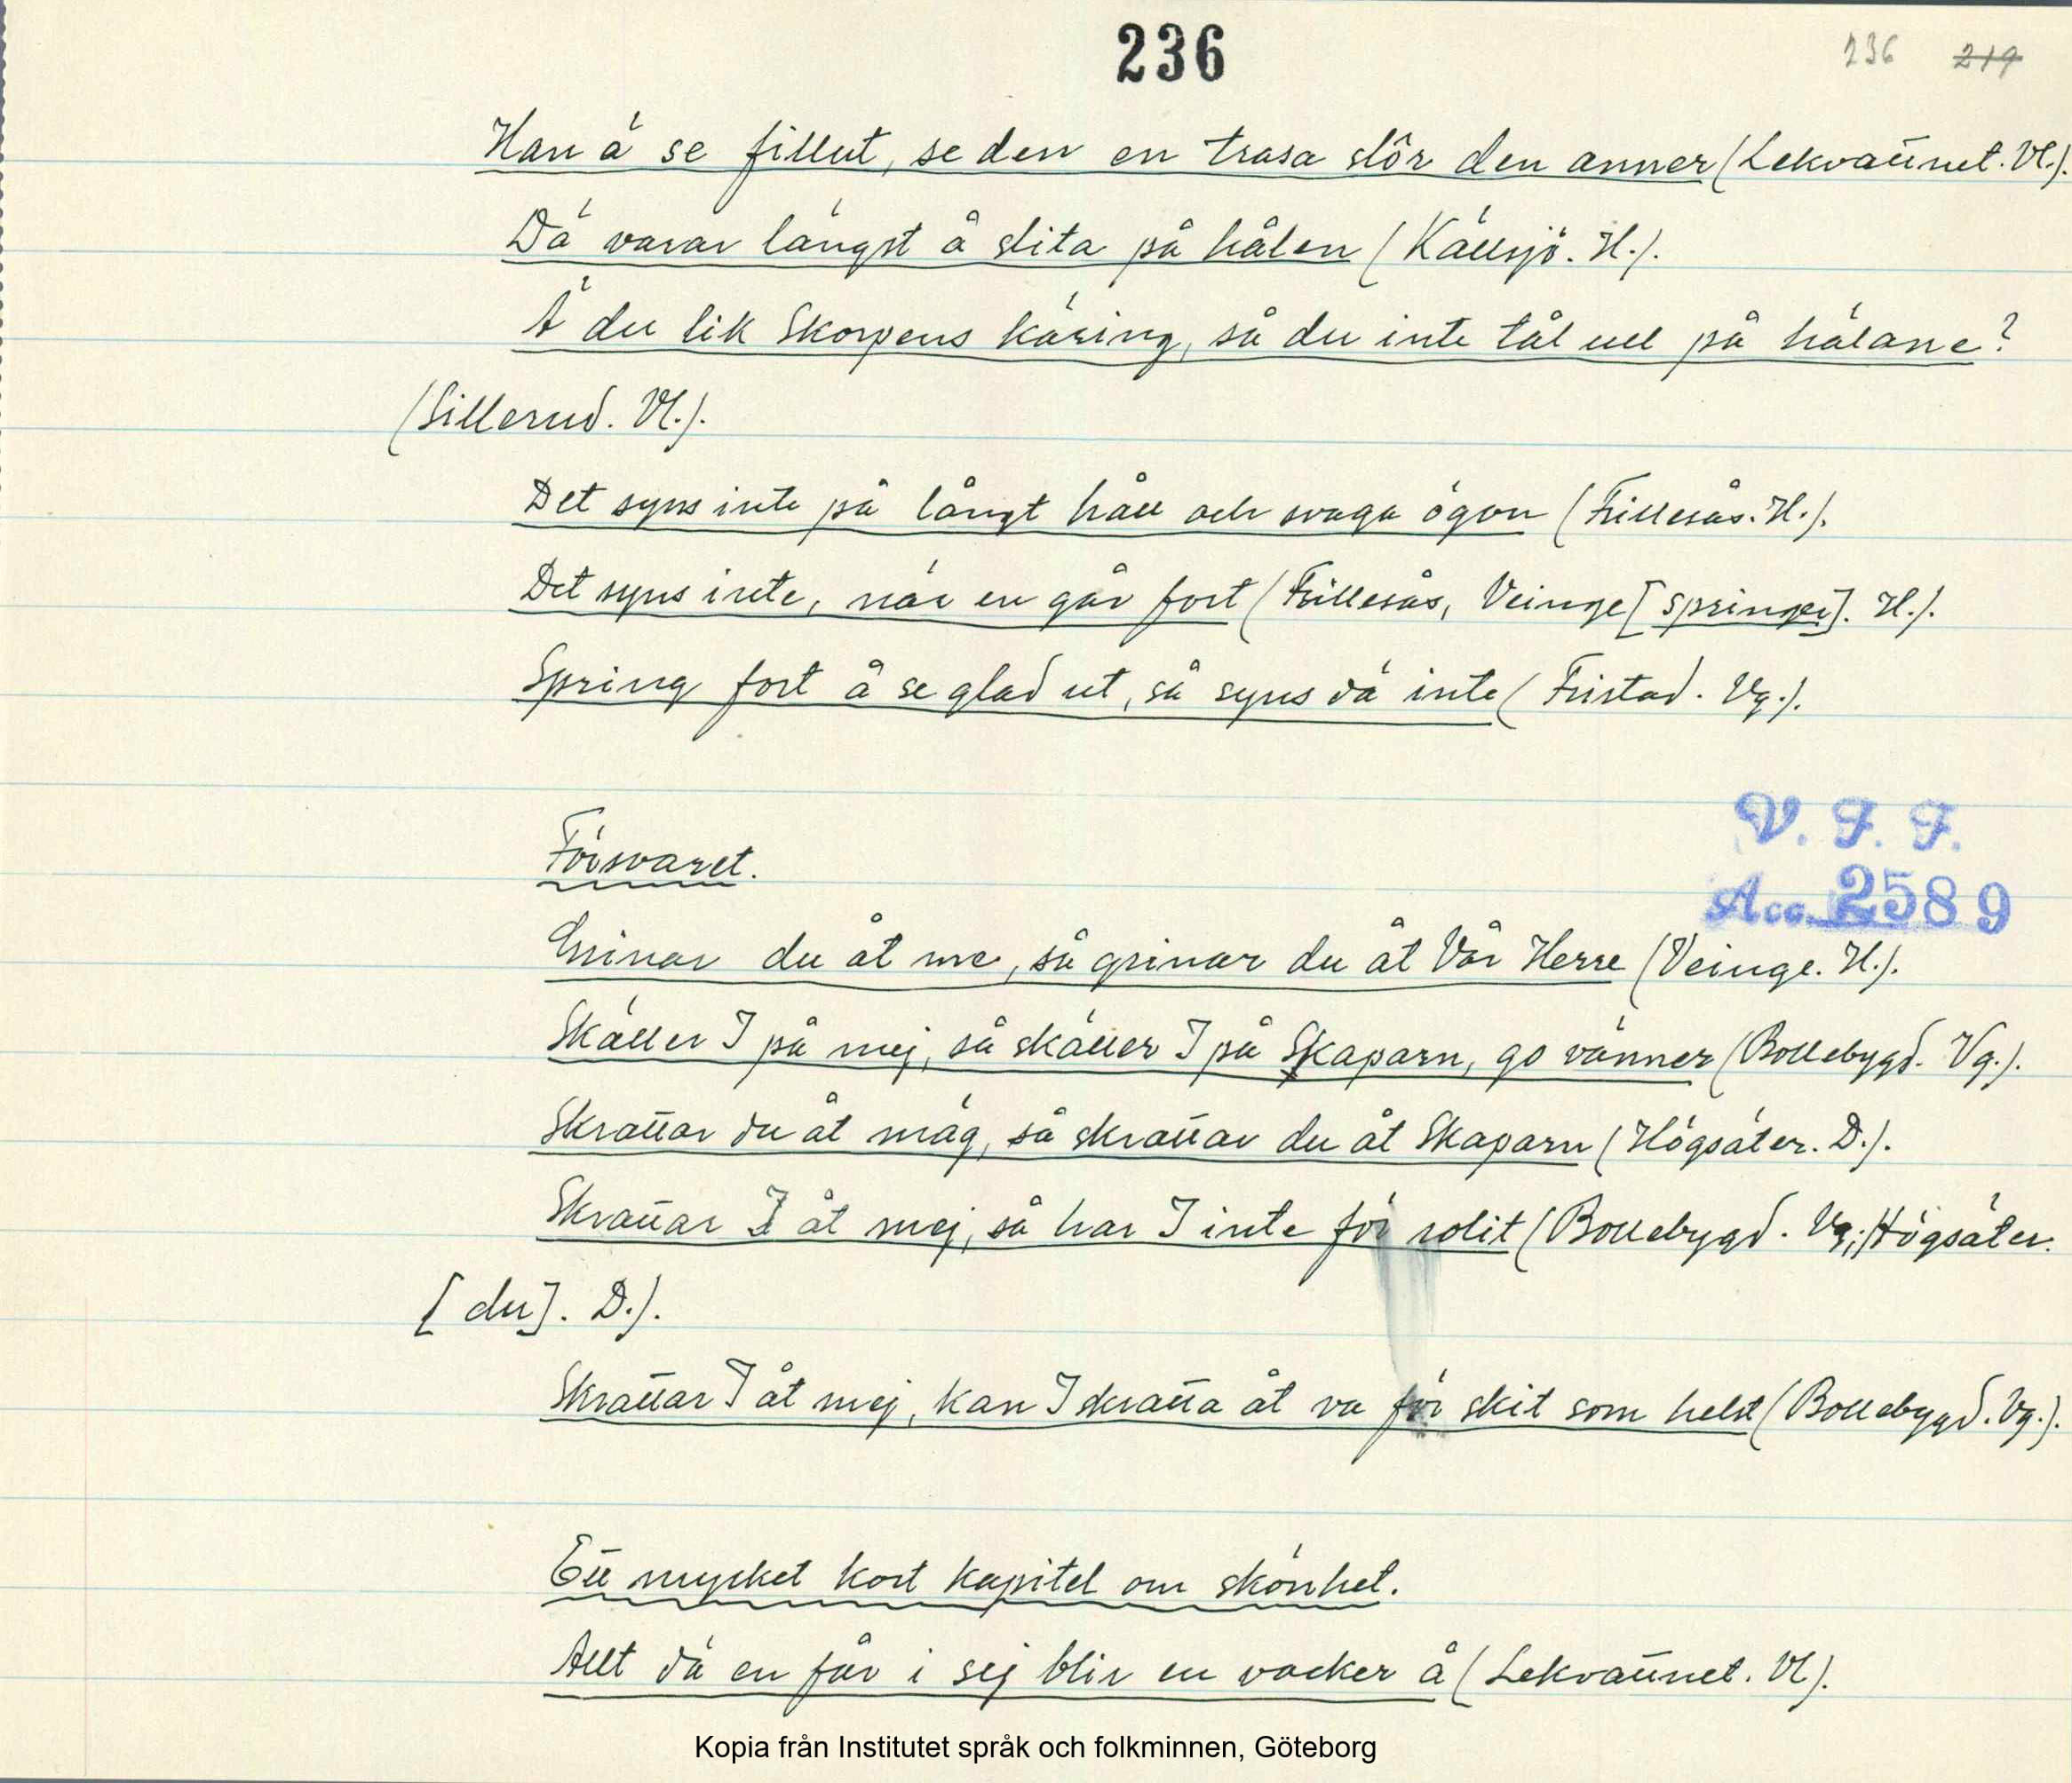 236
236 219
Han ä se fillut, se den en trasa slôr den anner (Lekvattnet. Vl.).
Dä varar längst å slita på hålen (Källsjö. H.).
Ä du lik Skorpens käring, så du inte tål ull på hälane?
(Sillerud. Vl.).
Det syns inte på långt håll och svaga ögon (Frillesås. H.).
Det syns inte, när en går fort (Frillesås, Veinge [springer]. H.).
Spring fort å se glad ut, så syns dä inte (Fristad. Vg.).
Försvaret.
V. F. F.
Acc. 2589
Grinar du åt me, så grinar du åt Vår Herre (Veinge. H.).
Skäller I på mej, så skäller I på Skaparn, go vänner (Bollebygd. Vg.).
Skrattar du åt mäg, så skrattar du åt Skaparn (Högsäter. D.).
Skrattar I åt mej, så har I inte för rolit (Bollebygd. Vg.; Högsäter.
[du]. D.).
Skrattar I åt mej, kan I skratta åt va för skit som helst (Bollebygd. Vg.).
Ett mycket kort kapitel om skönhet.
Allt dä en får i sej blir en vacker å (Lekvattnet. Vl).
Kopia från Institutet språk och folkminnen, Göteborg